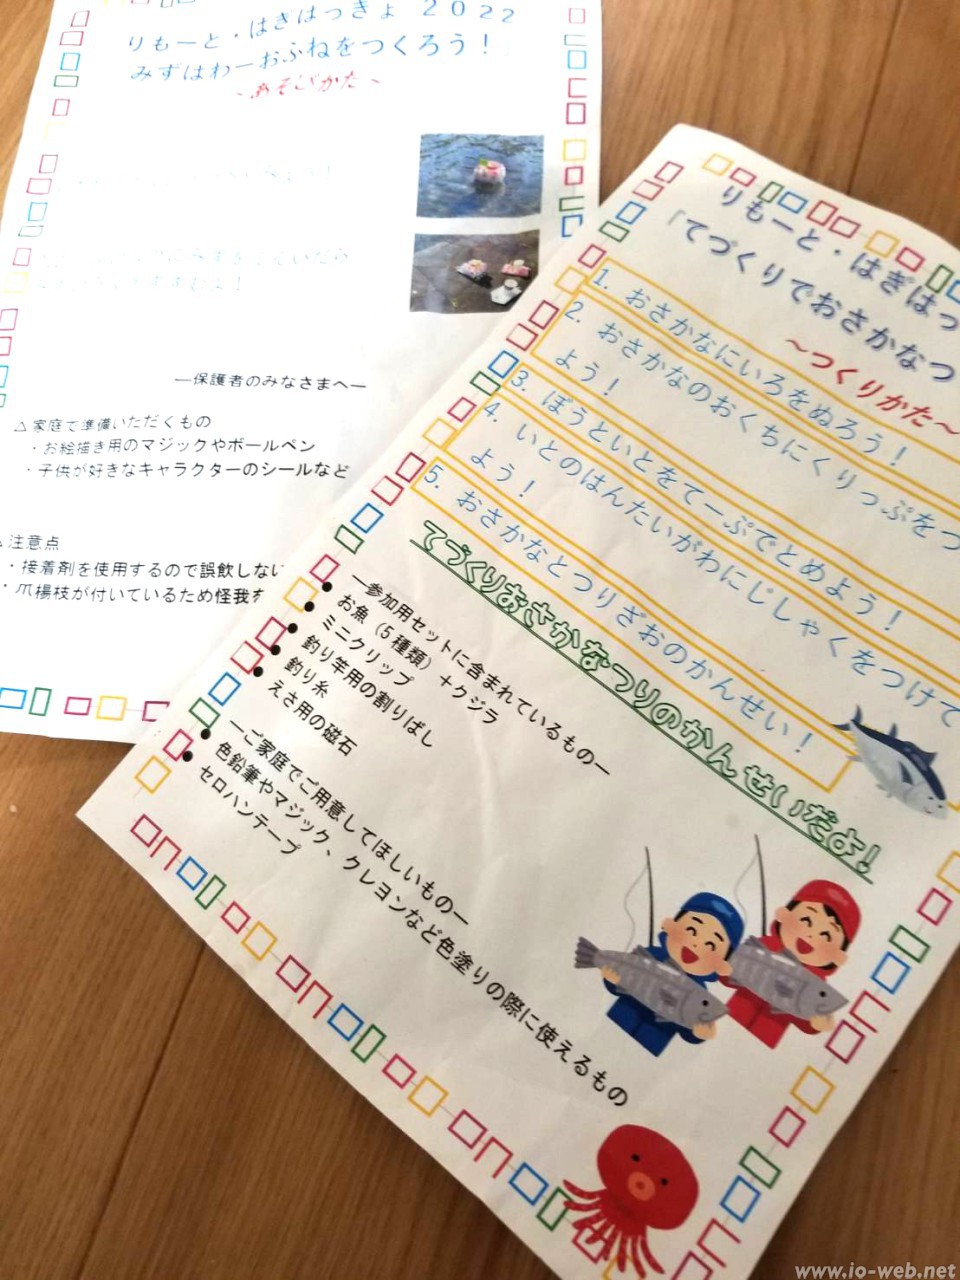 りもーと・はぎはっきょ 2022
みずはわーおふねをつくろう！
～あそびかた～
―保護者のみなさまへ―
△家庭で準備いただくもの
・お絵描き用のマジックやボールペン
・子供が好きなキャラクターのシールなど
△注意点
・接着剤を使用するので誤飲しない
・爪楊枝が付いているため怪我を
りもーと・はぎはっ
「てづくりでおさかなつ
～つくりかた～
1. おさかなにいろをぬろう！
2. おさかなのおくちにくりっぷをつ
よう！
3. ぼうといとをてーぷでとめよう！
4. いとのはんたいがわにじしゃくをつけて
よう！
5. おさかなとつりざおのかんせい！
てづくりおさかなつりのかんせいだよ！
―参加用セットに含まれているもの―
• お魚（5種類）＋クジラ
• ミニクリップ
• 釣り竿用の割りばし
• 釣り糸
• えさ用の磁石
―ご家庭でご用意してほしいもの―
• 色鉛筆やマジック、クレヨンなど色塗りの際に使えるもの
• セロハンテープ
www.io-web.net